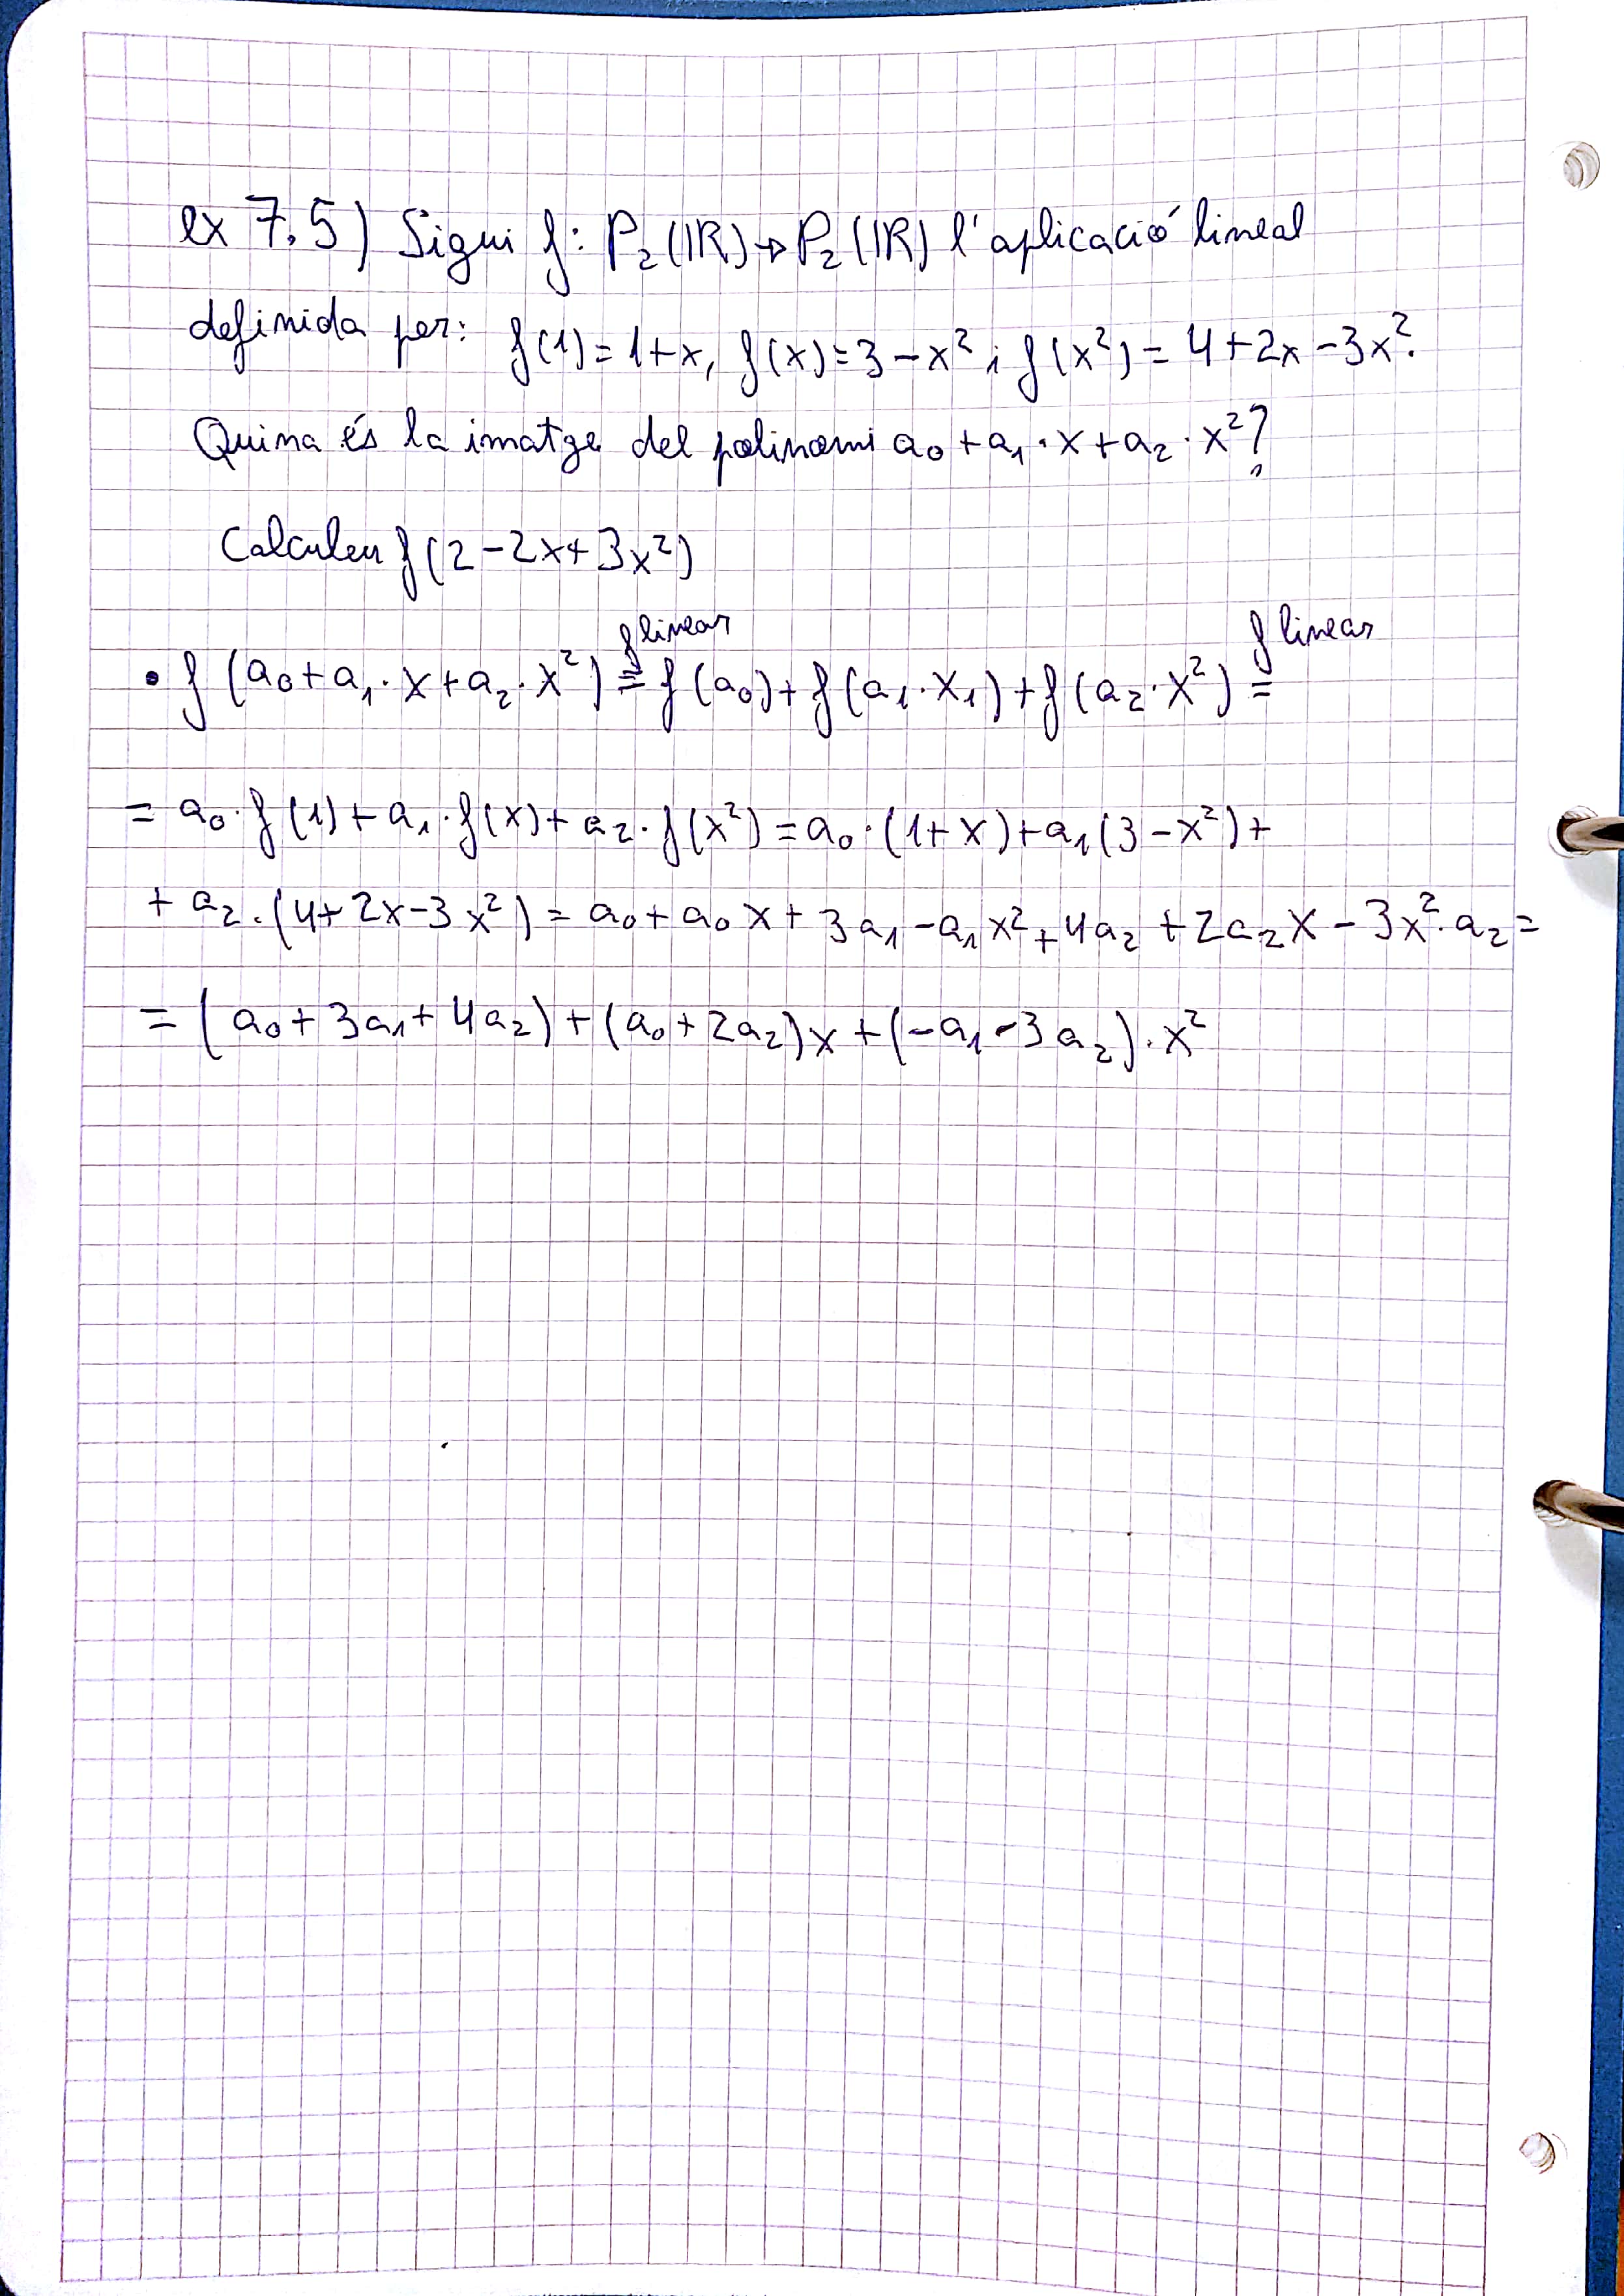 ex 7.5) Sigui f: P₂(ℝ)→P₂(ℝ) l'aplicació lineal
definida per: f(1)=1+x, f(x)=3-x² i f(x²)=4+2x-3x².
Quina és la imatge del polinomi a₀+a₁·x+a₂·x²?
Calculeu f(2-2x+3x²)
f linear f linear
• f(a₀+a₁·x+a₂·x²) = f(a₀)+f(a₁·x₁)+f(a₂·x²) =
= a₀·f(1)+a₁·f(x)+a₂·f(x²)=a₀·(1+x)+a₁(3-x²)+
+a₂·(4+2x-3x²)=a₀+a₀x+3a₁-a₁x²+4a₂+2a₂x-3x²·a₂=
=(a₀+3a₁+4a₂)+(a₀+2a₂)x+(-a₁-3a₂)·x²